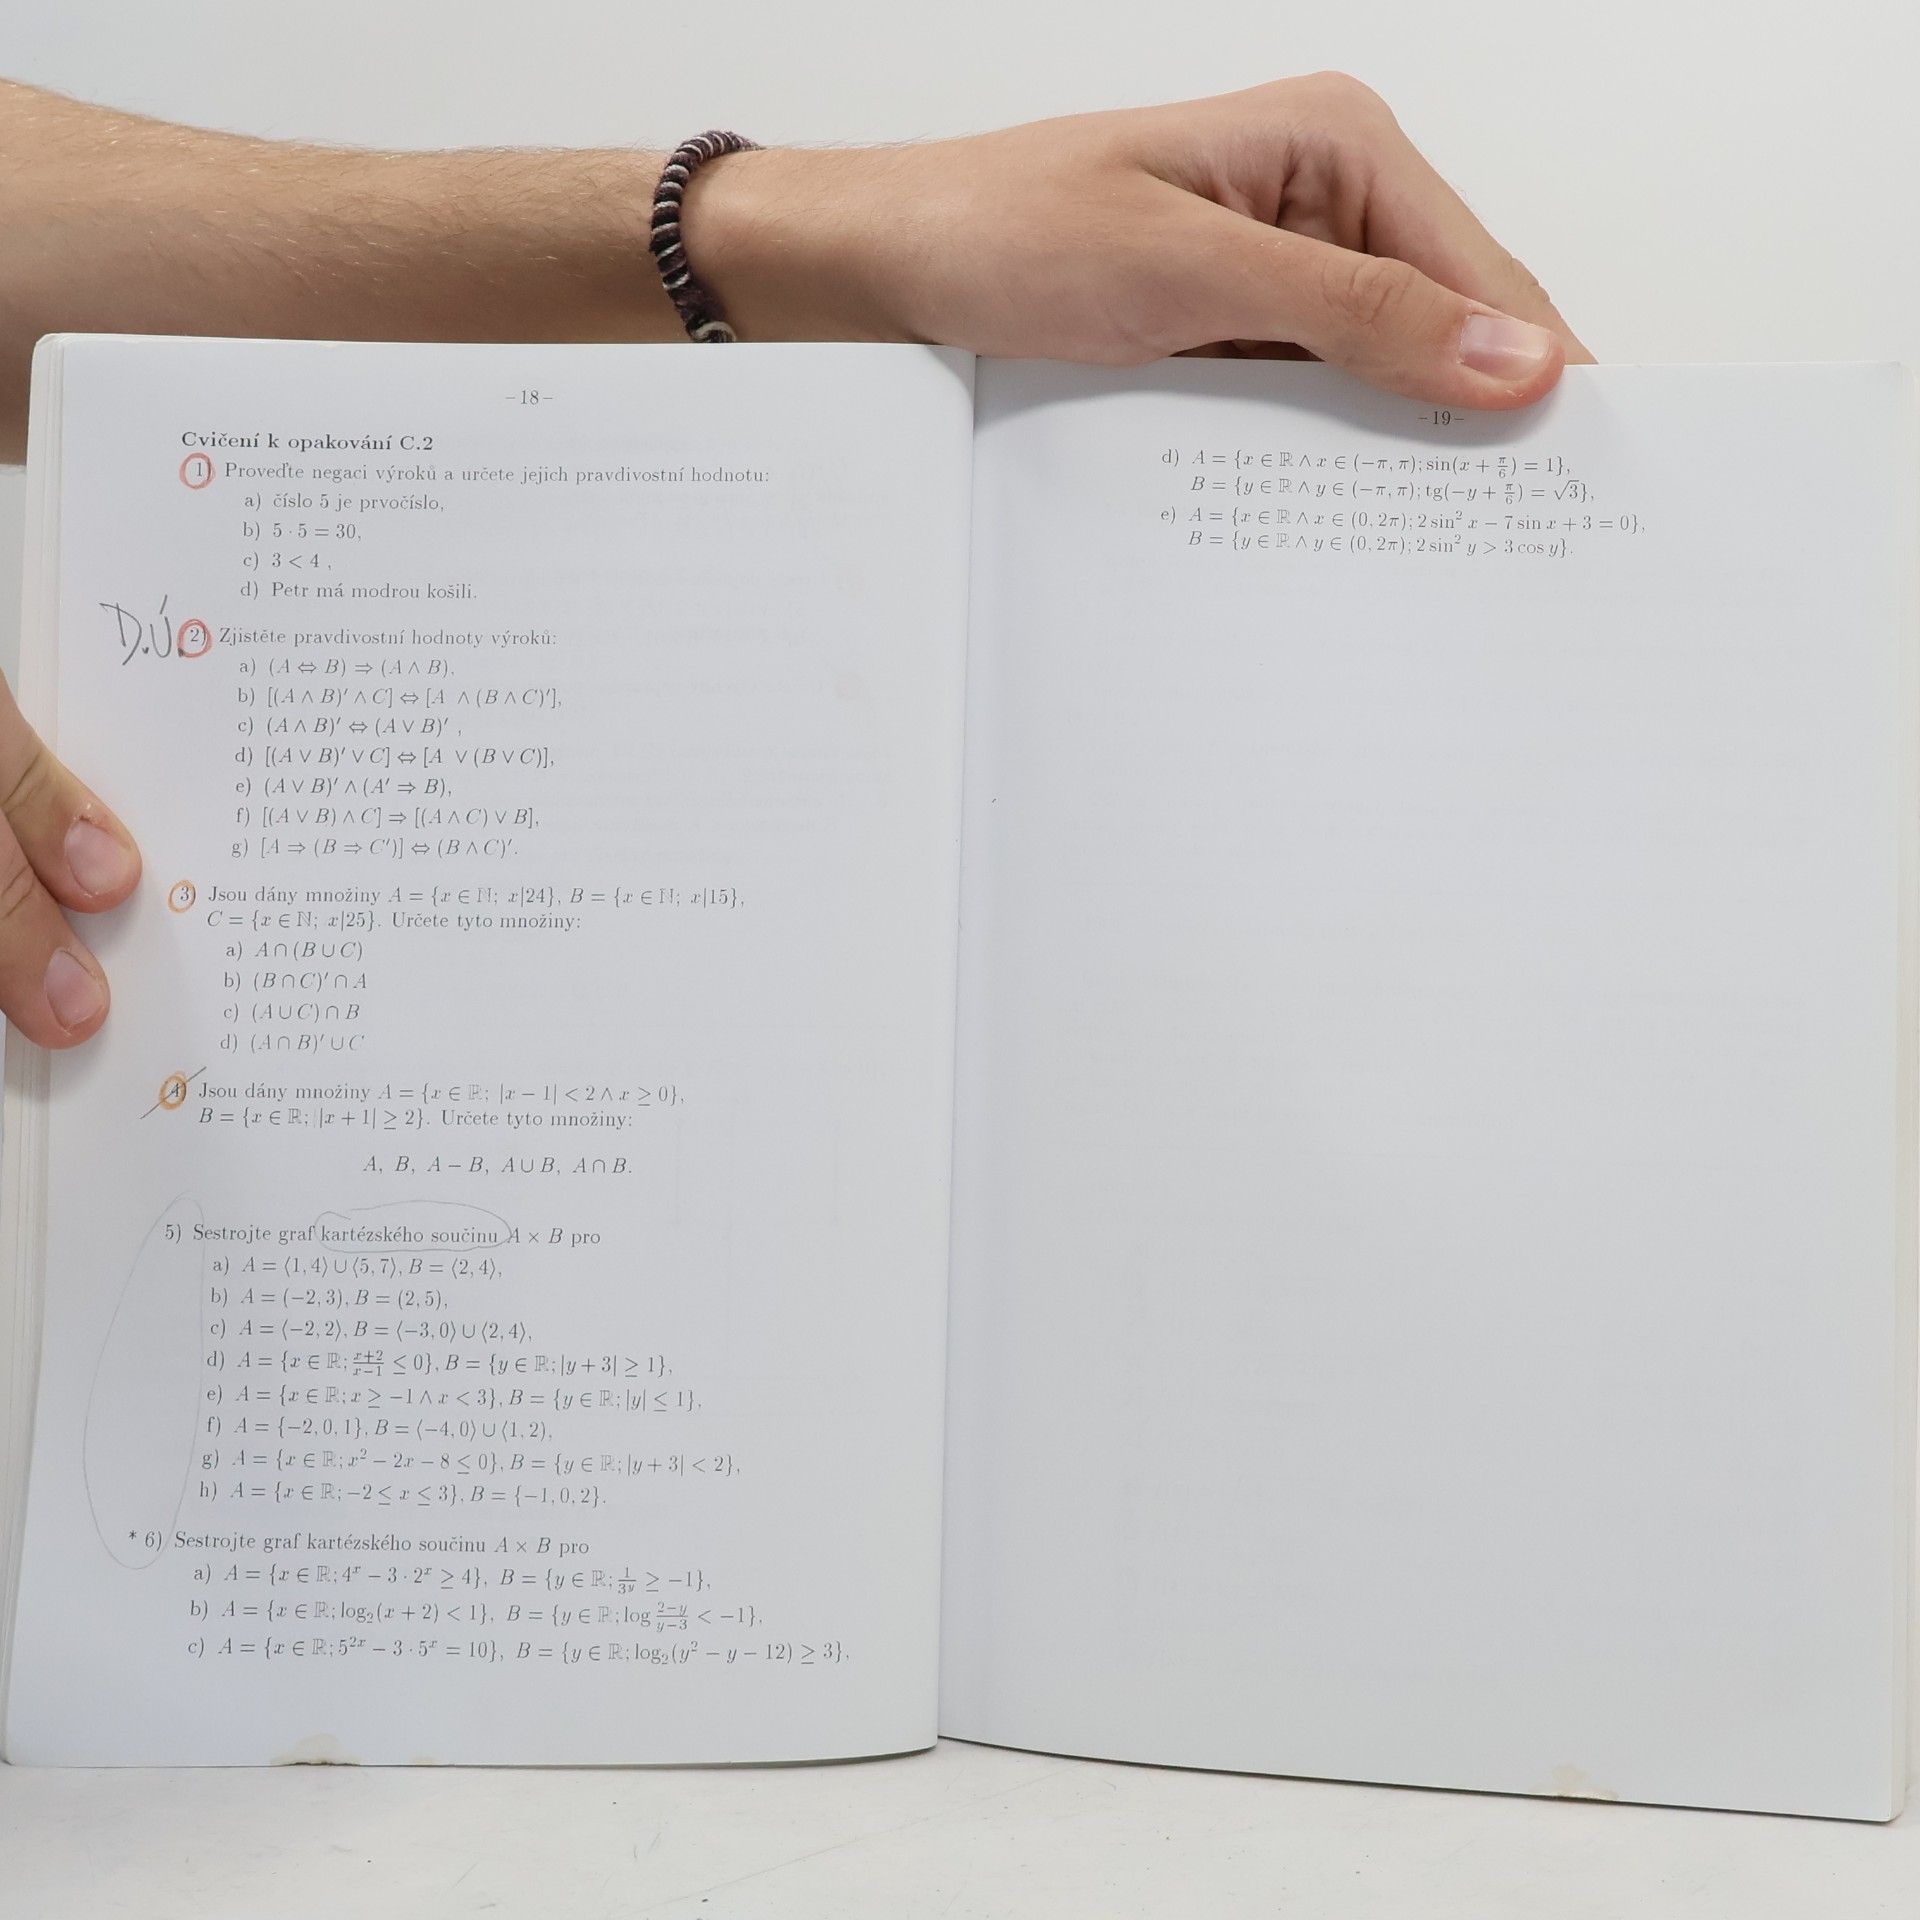 –18–
Cvičení k opakování C.2
1) Proveďte negaci výroků a určete jejich pravdivostní hodnotu:
a) číslo 5 je prvočíslo,
b) 5 · 5 = 30,
c) 3 < 4 ,
d) Petr má modrou košili.
D.Ú. 2) Zjistěte pravdivostní hodnoty výroků:
a) (A ⇔ B) ⇒ (A ∧ B),
b) [(A ∧ B)′ ∧ C] ⇔ [A ∧ (B ∧ C)′],
c) (A ∧ B)′ ⇔ (A ∨ B)′ ,
d) [(A ∨ B)′ ∨ C] ⇔ [A ∨ (B ∨ C)],
e) (A ∨ B)′ ∧ (A′ ⇒ B),
f) [(A ∨ B) ∧ C] ⇒ [(A ∧ C) ∨ B],
g) [A ⇒ (B ⇒ C′)] ⇔ (B ∧ C)′.
3) Jsou dány množiny A = {x ∈ ℕ; x|24}, B = {x ∈ ℕ; x|15},
C = {x ∈ ℕ; x|25}. Určete tyto množiny:
a) A ∩ (B ∪ C)
b) (B ∩ C)′ ∩ A
c) (A ∪ C) ∩ B
d) (A ∩ B)′ ∪ C
4) Jsou dány množiny A = {x ∈ ℝ; |x − 1| < 2 ∧ x ≥ 0},
B = {x ∈ ℝ; |x + 1| ≥ 2}. Určete tyto množiny:
A, B, A − B, A ∪ B, A ∩ B.
5) Sestrojte graf kartézského součinu A × B pro
a) A = ⟨1, 4⟩ ∪ ⟨5, 7⟩, B = ⟨2, 4⟩,
b) A = (−2, 3), B = (2, 5),
c) A = ⟨−2, 2⟩, B = ⟨−3, 0⟩ ∪ ⟨2, 4⟩,
d) A = {x ∈ ℝ; (x+2)/(x−1) ≤ 0}, B = {y ∈ ℝ; |y + 3| ≥ 1},
e) A = {x ∈ ℝ; x ≥ −1 ∧ x < 3}, B = {y ∈ ℝ; |y| ≤ 1},
f) A = {−2, 0, 1}, B = ⟨−4, 0⟩ ∪ ⟨1, 2),
g) A = {x ∈ ℝ; x² − 2x − 8 ≤ 0}, B = {y ∈ ℝ; |y + 3| < 2},
h) A = {x ∈ ℝ; −2 ≤ x ≤ 3}, B = {−1, 0, 2}.
* 6) Sestrojte graf kartézského součinu A × B pro
a) A = {x ∈ ℝ; 4ˣ − 3 · 2ˣ ≥ 4}, B = {y ∈ ℝ; 1/3y ≥ −1},
b) A = {x ∈ ℝ; log₂(x + 2) < 1}, B = {y ∈ ℝ; log (2−y)/(y−3) < −1},
c) A = {x ∈ ℝ; 5²ˣ − 3 · 5ˣ = 10}, B = {y ∈ ℝ; log₂(y² − y − 12) ≥ 3},
–19–
d) A = {x ∈ ℝ ∧ x ∈ (−π, π); sin(x + π/6) = 1},
B = {y ∈ ℝ ∧ y ∈ (−π, π); tg(−y + π/6) = √3},
e) A = {x ∈ ℝ ∧ x ∈ (0, 2π); 2 sin² x − 7 sin x + 3 = 0},
B = {y ∈ ℝ ∧ y ∈ (0, 2π); 2 sin² y > 3 cos y}.